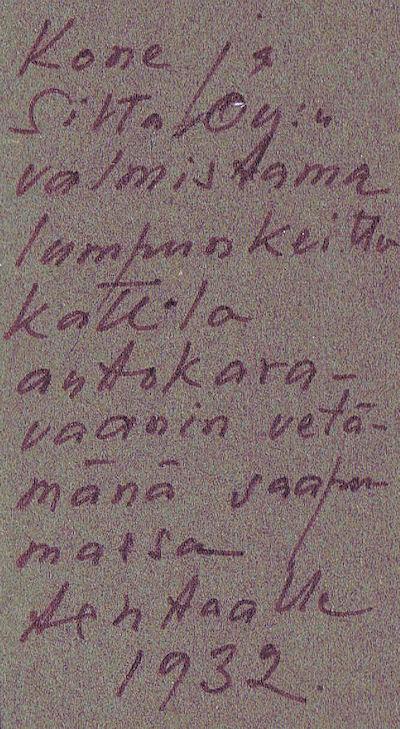 Kone ja
Silta Oy:n
valmistama
lumpunkeitto
kattila
autokara-
vaanin vetä-
mänä saapu-
massa
tehtaalle
1932.